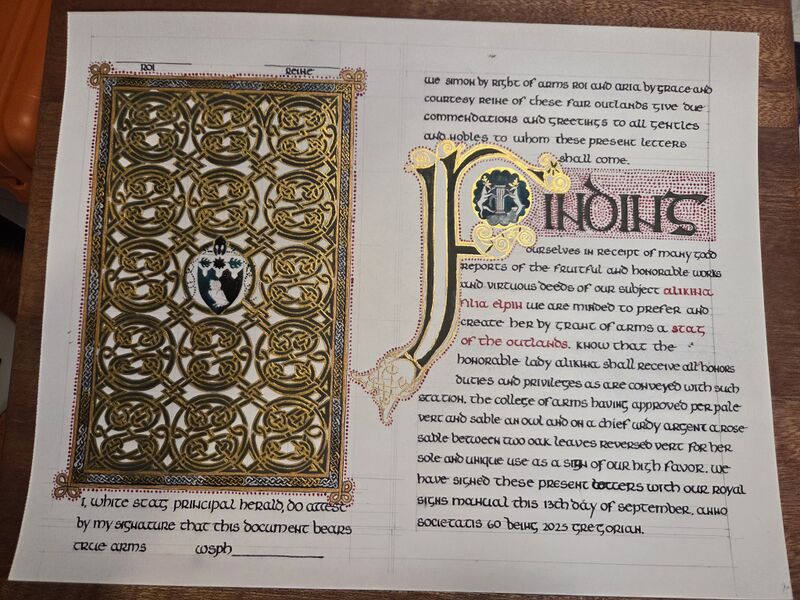 ROI REINE
we simon by right of arms roi and aria by grace and
courtesy reine of these fair outlands give due
commendations and greetings to all gentles
and nobles to whom these present letters
shall come.
FINDING
ourselves in receipt of many good
reports of the fruitful and honorable works
and virtuous deeds of our subject alikina
filia elpin we are minded to prefer and
create her by grant of arms a stag
of the outlands. know that the
honorable lady alikina shall receive all honors
duties and privileges as are conveyed with such
station. the college of arms having approved per pale
vert and sable an owl and on a chief urdy argent a rose
sable between two oak leaves reversed vert for her
sole and unique use as a sign of our high favor. we
have signed these present letters with our royal
signs manual this 13th day of september, anno
societatis 60 being 2025 gregorian.
I, white stag principal herald, do attest
by my signature that this document bears
true arms wsph